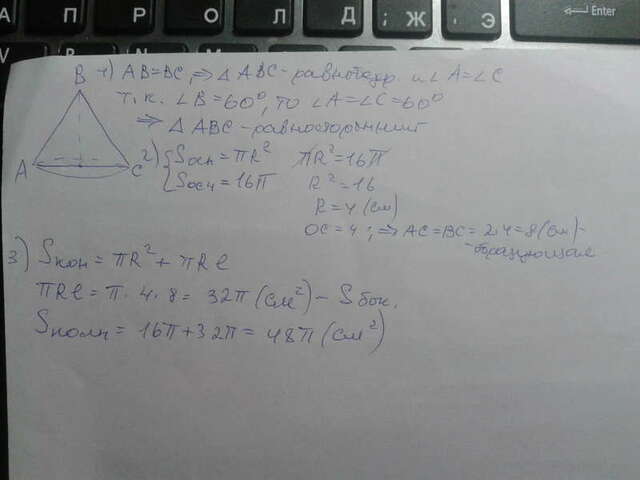 П Р О Л Д ; Ж : Э Enter
B 1) AB=BC, ⇒ Δ ABC - равнобедр. и ∠A=∠C
т.к. ∠B=60°, то ∠A=∠C=60°
⇒ Δ ABC - равносторонний
A C 2) { Sосн = πR² πR²=16π
Sосн = 16π R²=16
R=4 (см)
OC=4; ⇒ AC=BC=2·4=8(см)-
-образующая
3) Sкон = πR² + πRl
πRl = π·4·8 = 32π (см²) - Sбок.
Sполн = 16π+32π = 48π (см²)